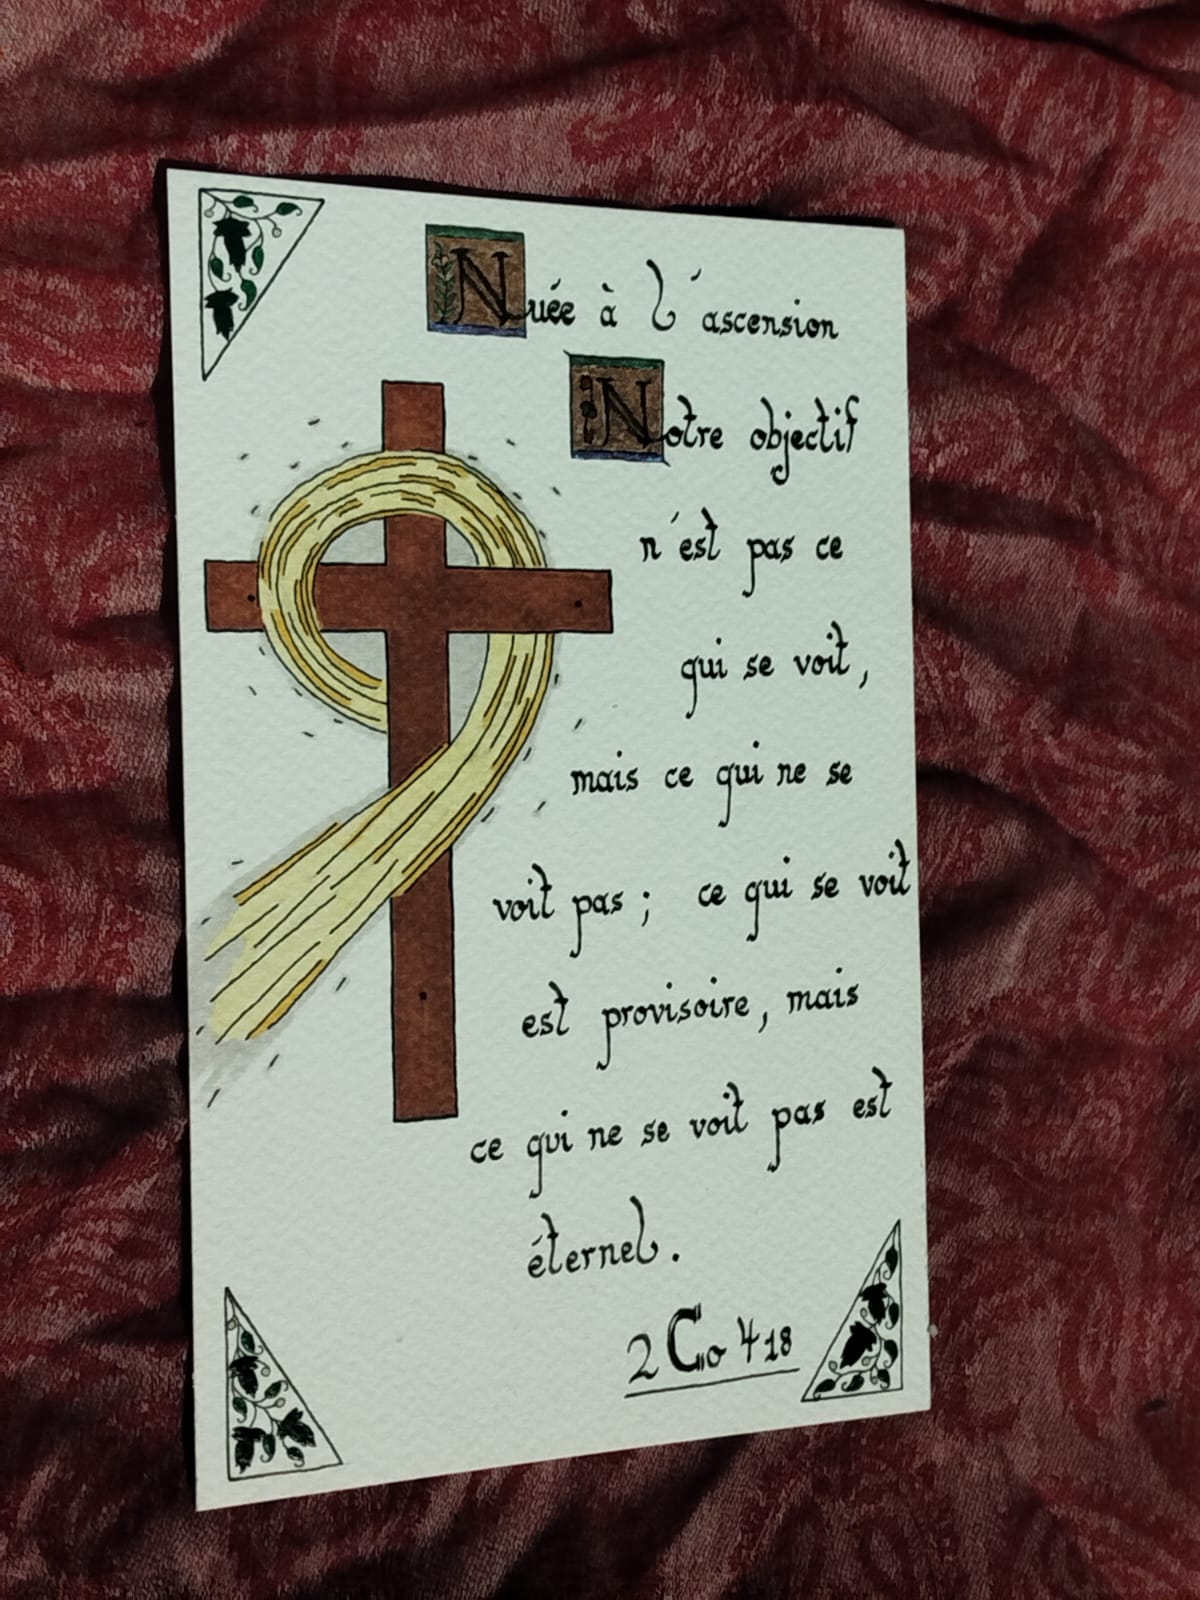 Nuée à l'ascension
Notre objectif
n'est pas ce
qui se voit,
mais ce qui ne se
voit pas ; ce qui se voit
est provisoire, mais
ce qui ne se voit pas est
éternel.
2 Co 4 18